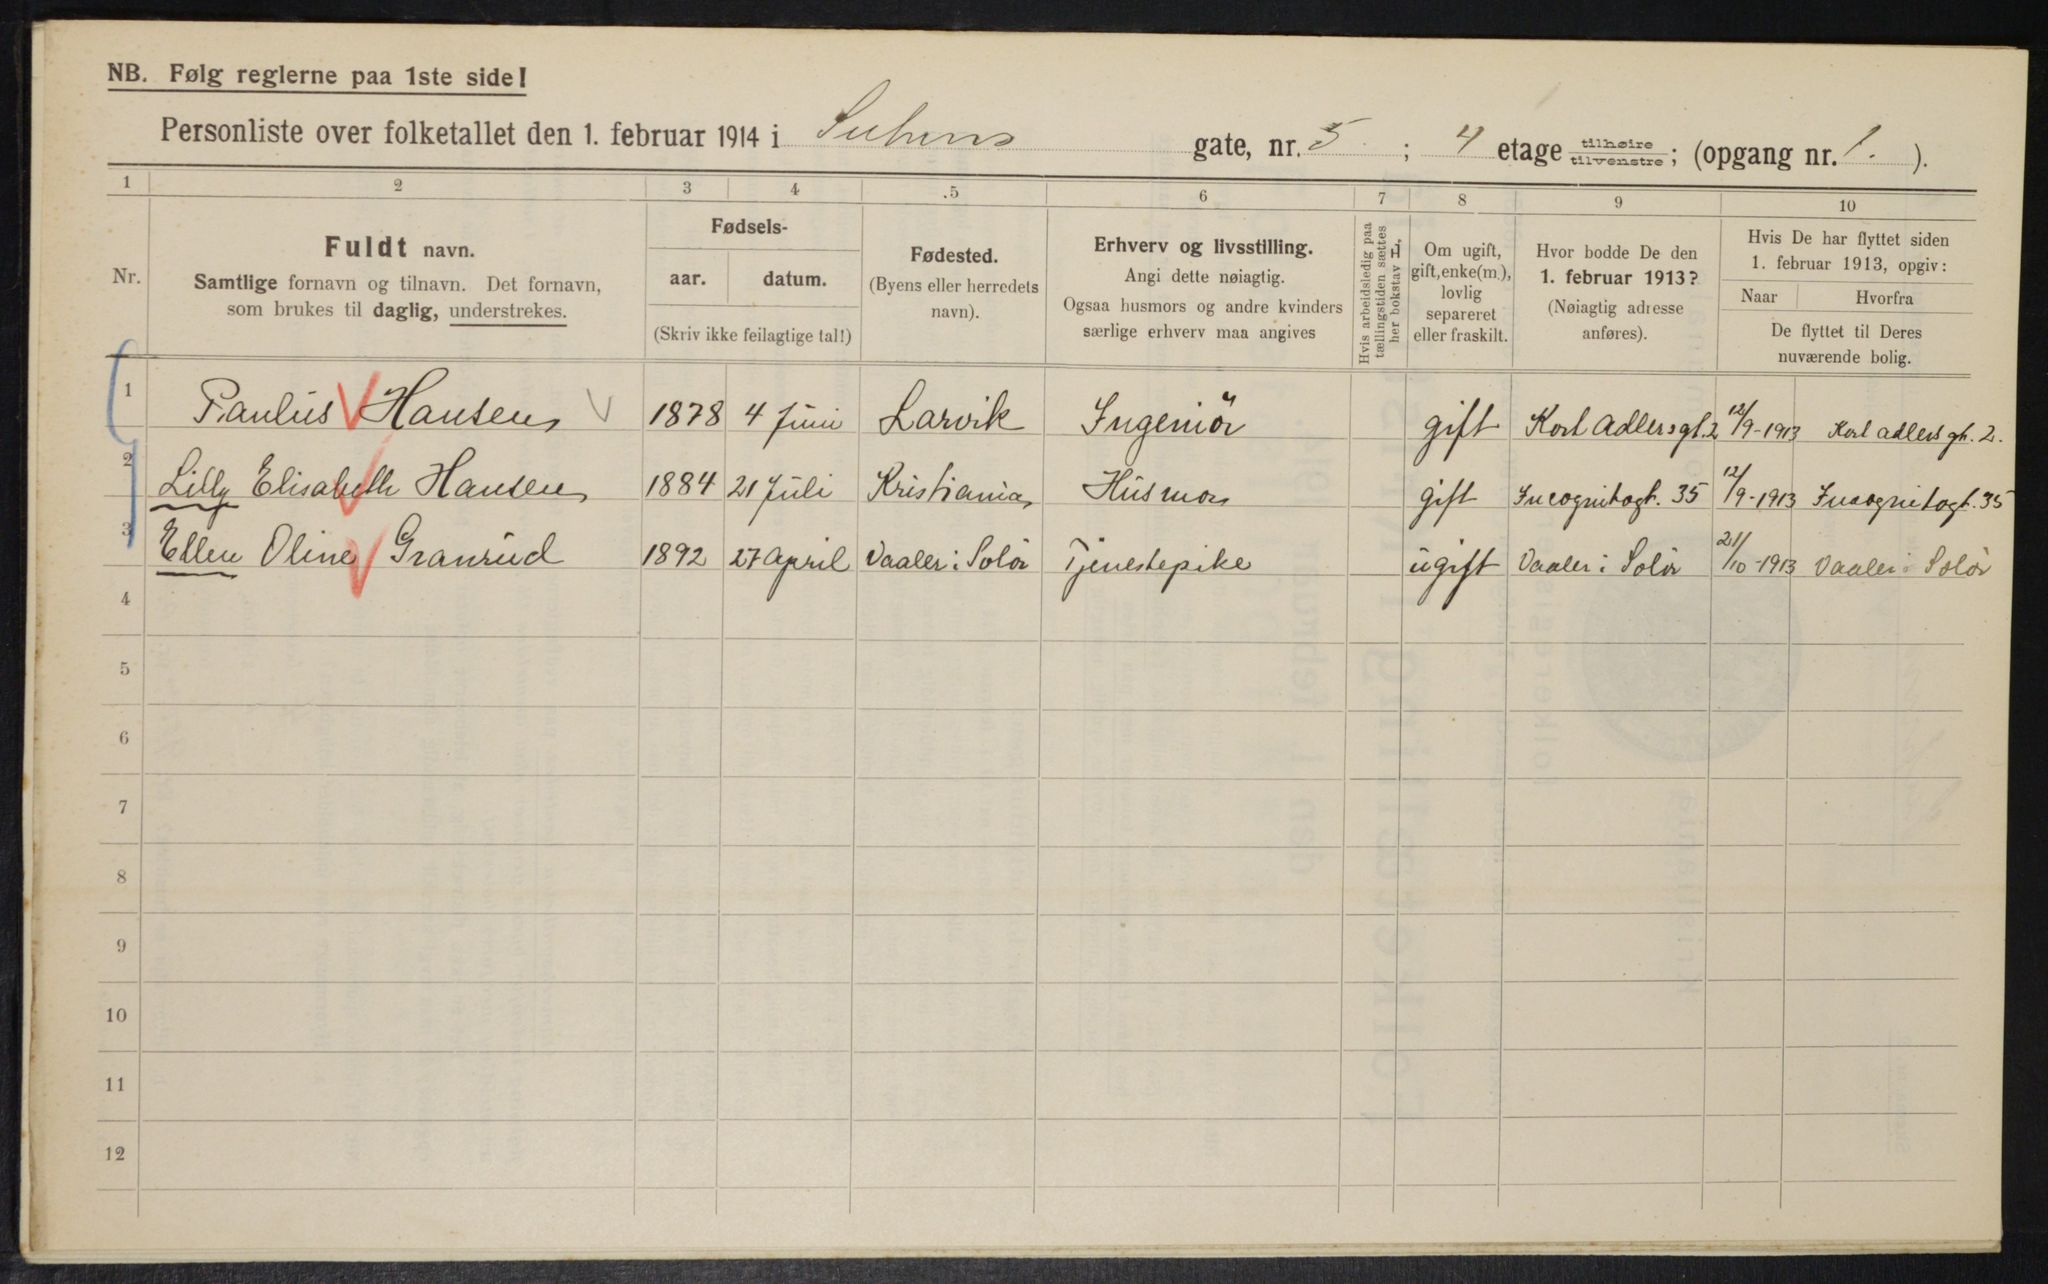 NB. Følg reglerne paa 1ste side!
Personliste over folketallet den 1. februar 1914 i Suhms gate, nr. 5. ; 4 etage tilhøire tilvenstre; (opgang nr. 1. ).
1 2 3 4 5 6 7 8 9 10
Nr.
Fuldt navn.
Samtlige fornavn og tilnavn. Det fornavn,
som brukes til daglig, understrekes.
Fødsels-
aar. datum.
(Skriv ikke feilagtige tal!)
Fødested.
(Byens eller herredets
navn).
Erhverv og livsstilling.
Angi dette nøiagtig.
Ogsaa husmors og andre kvinders
særlige erhverv maa angives
Hvis arbeidsledig paa
tællingstiden sættes
her bokstav L.
Om ugift,
gift, enke(m.),
lovlig
separeret
eller fraskilt.
Hvor bodde De den
1. februar 1913?
(Nøiagtig adresse
anføres).
Hvis De har flyttet siden
1. februar 1913, opgiv:
Naar Hvorfra
De flyttet til Deres
nuværende bolig.
1 Paulus Hansen 1878 4 Juni Larvik Ingeniör gift Kort Adlersgt. 2 12/9-1913 Kort adlers gt. 2.
2 Lilly Elisabeth Hansen 1884 21 Juli Kristiania Husmor gift Incognitogt. 35 12/9-1913 Incognitogt. 35
3 Ellen Oline Granrud 1892 27 April Vaaler i Solör Tjenestepike ugift Vaaler i Solör 21/10-1913 Vaaler i Solör
4
5
6
7
8
9
10
11
12